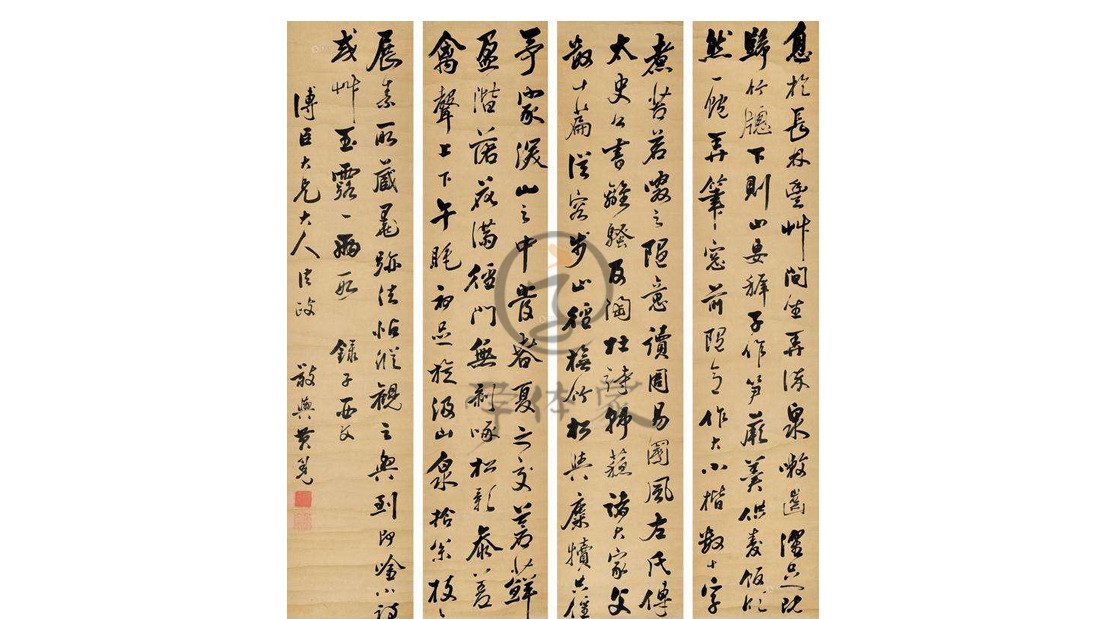 息於長林豐艸間坐弄流泉漱齒濯足既
歸竹牕下則山妻稺子作笋蕨羹供麥飯欣
然一飽弄筆窓前隨意作大小楷數十字
煮苦茗啜之隨意讀周易國風左氏傳
太史公書離騷及陶杜詩韓蘇諸大家文
數十篇從容步山徑撫竹松與麋犢共偃
予家深山之中每春夏之交蒼蘚
盈階落花滿徑門無剝啄松影參差
禽聲上下午睡初足旋汲山泉拾松枝
展素所藏墨跡法帖縱觀之興到即唫小詩
或艸玉露一兩段 錄子西文
傅臣大兄大人法政
敬輿黃
字体家